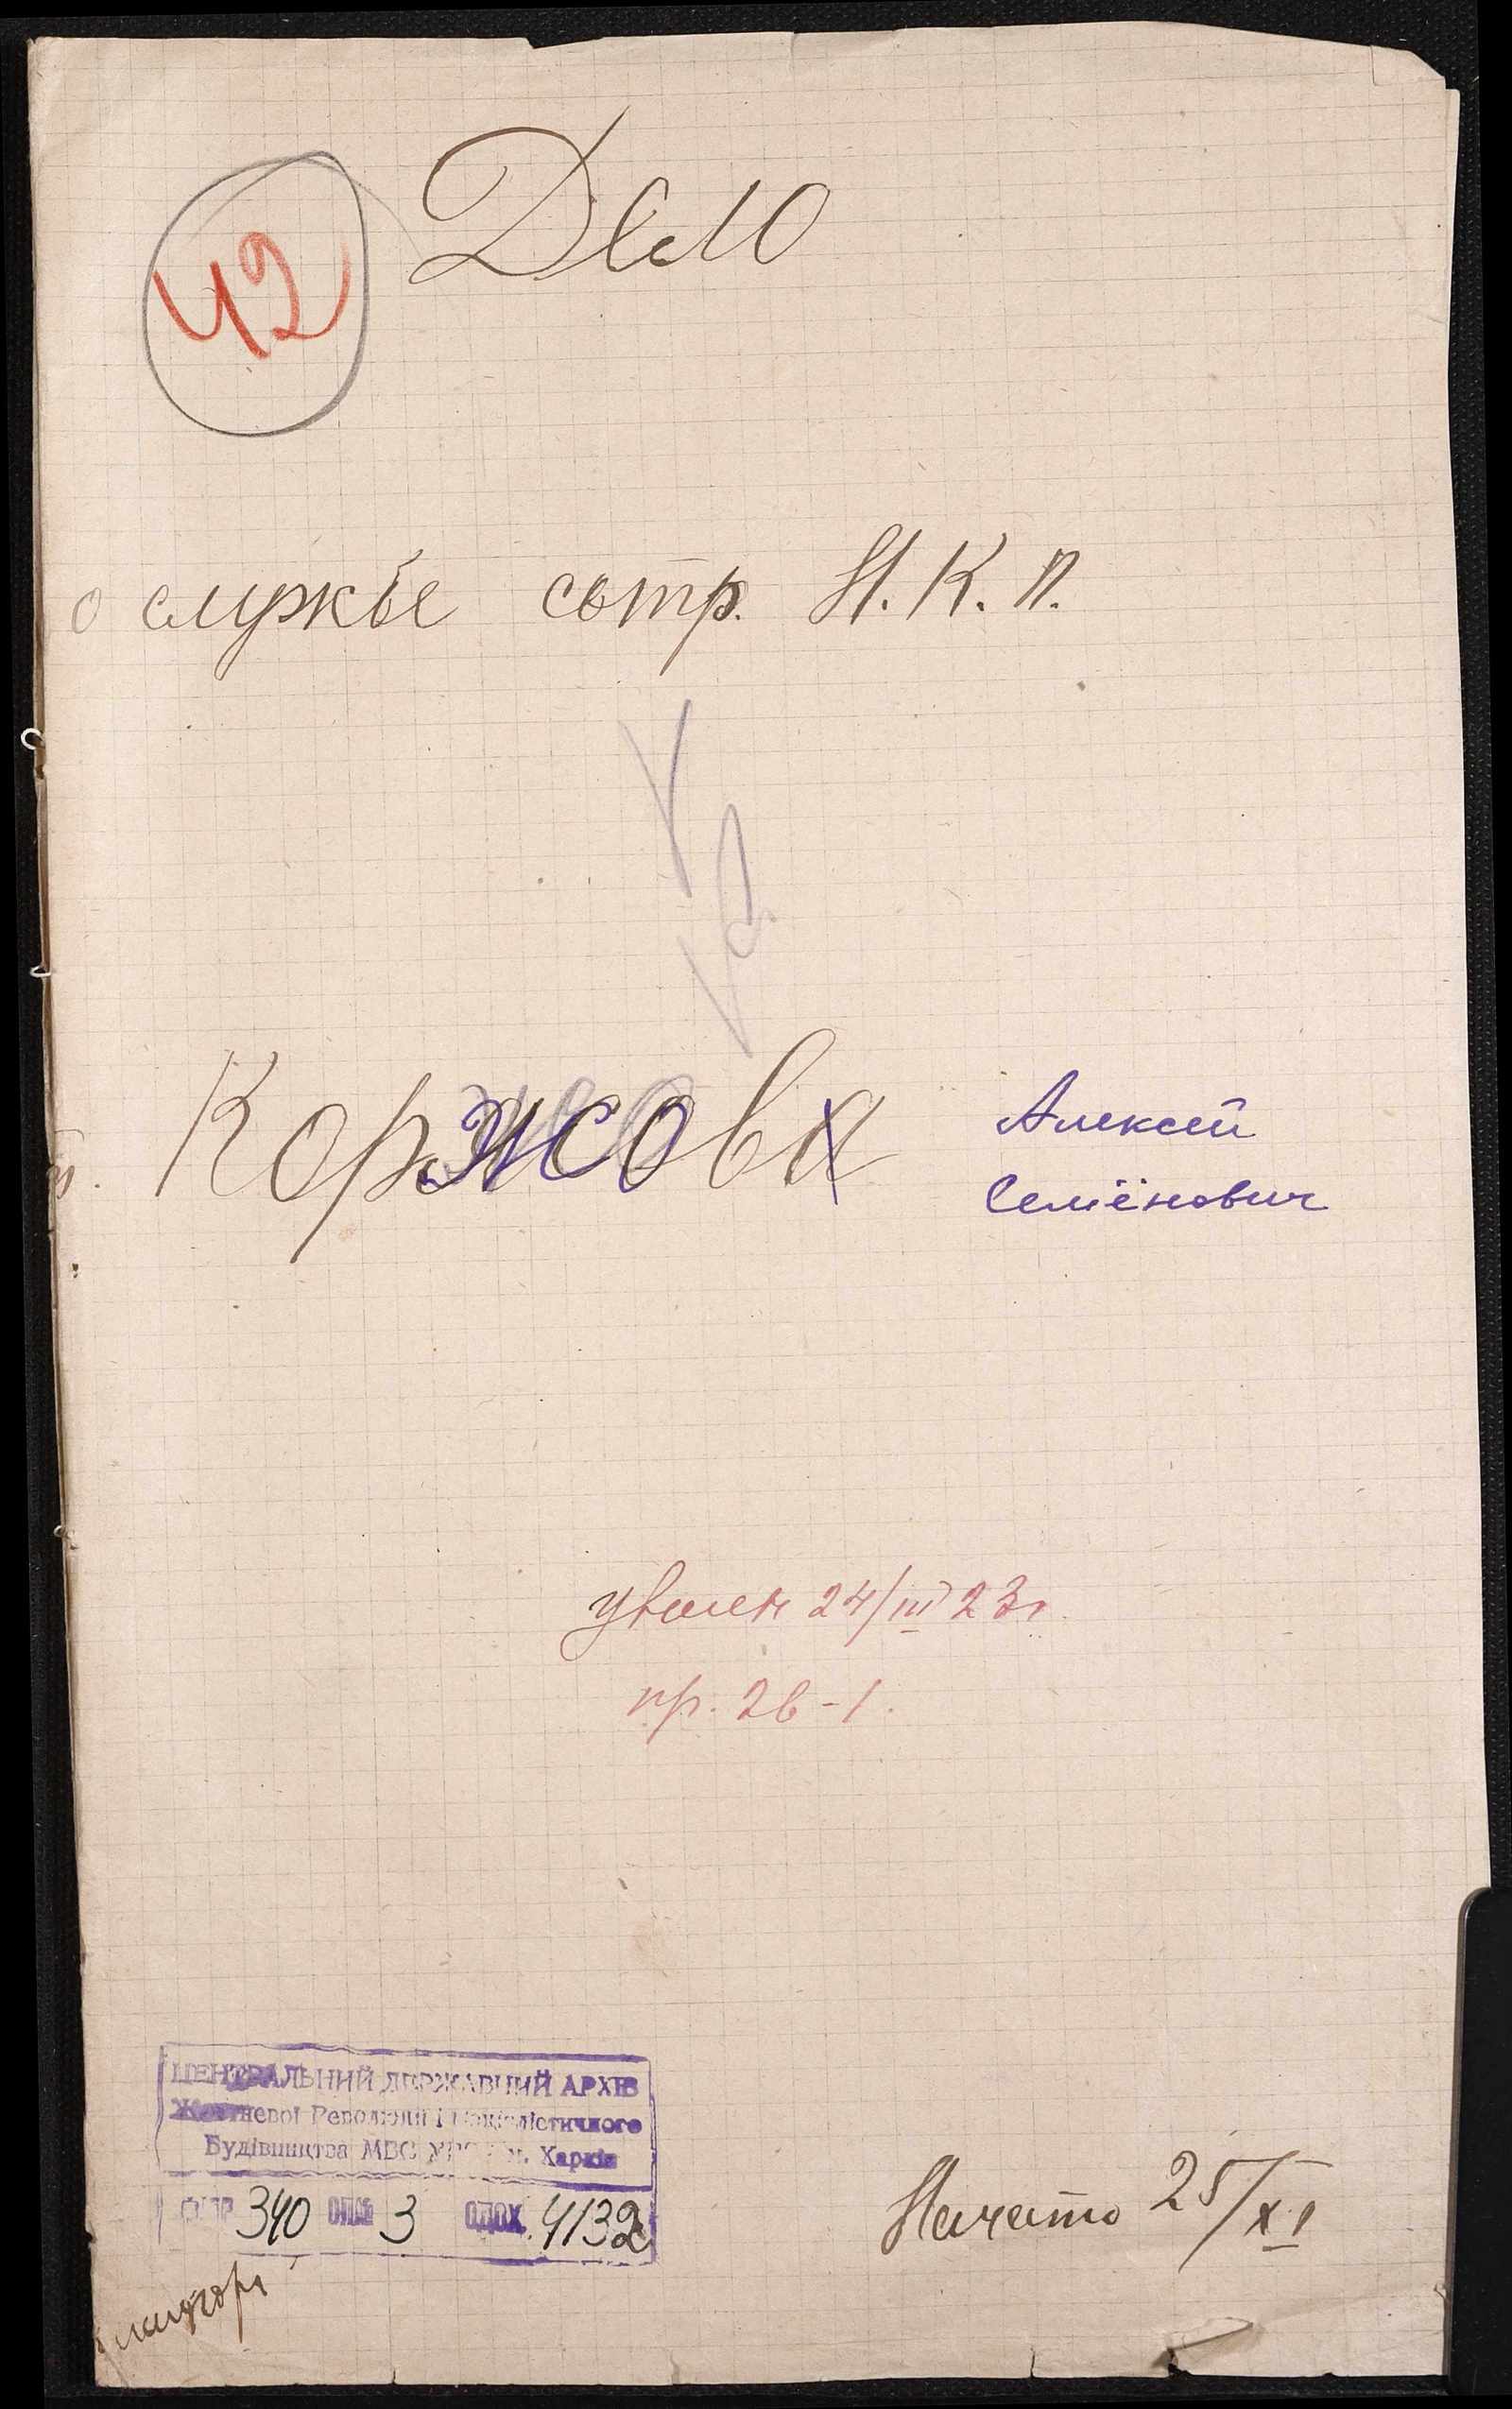 42
Дело
о службе сотр. Н. К. П.
Коржова
Алексей
Семёнович
уволен 24/III 23г.
пр. 26-1.
ЦЕНТРАЛЬНИЙ ДЕРЖАВНИЙ АРХІВ
Жовтневої Революції і Соціалістичного
Будівництва МВС УРСР м. Харків
ФОНД 340 ОПИС 3 ОДОХ. 4132
Начато 25/XI